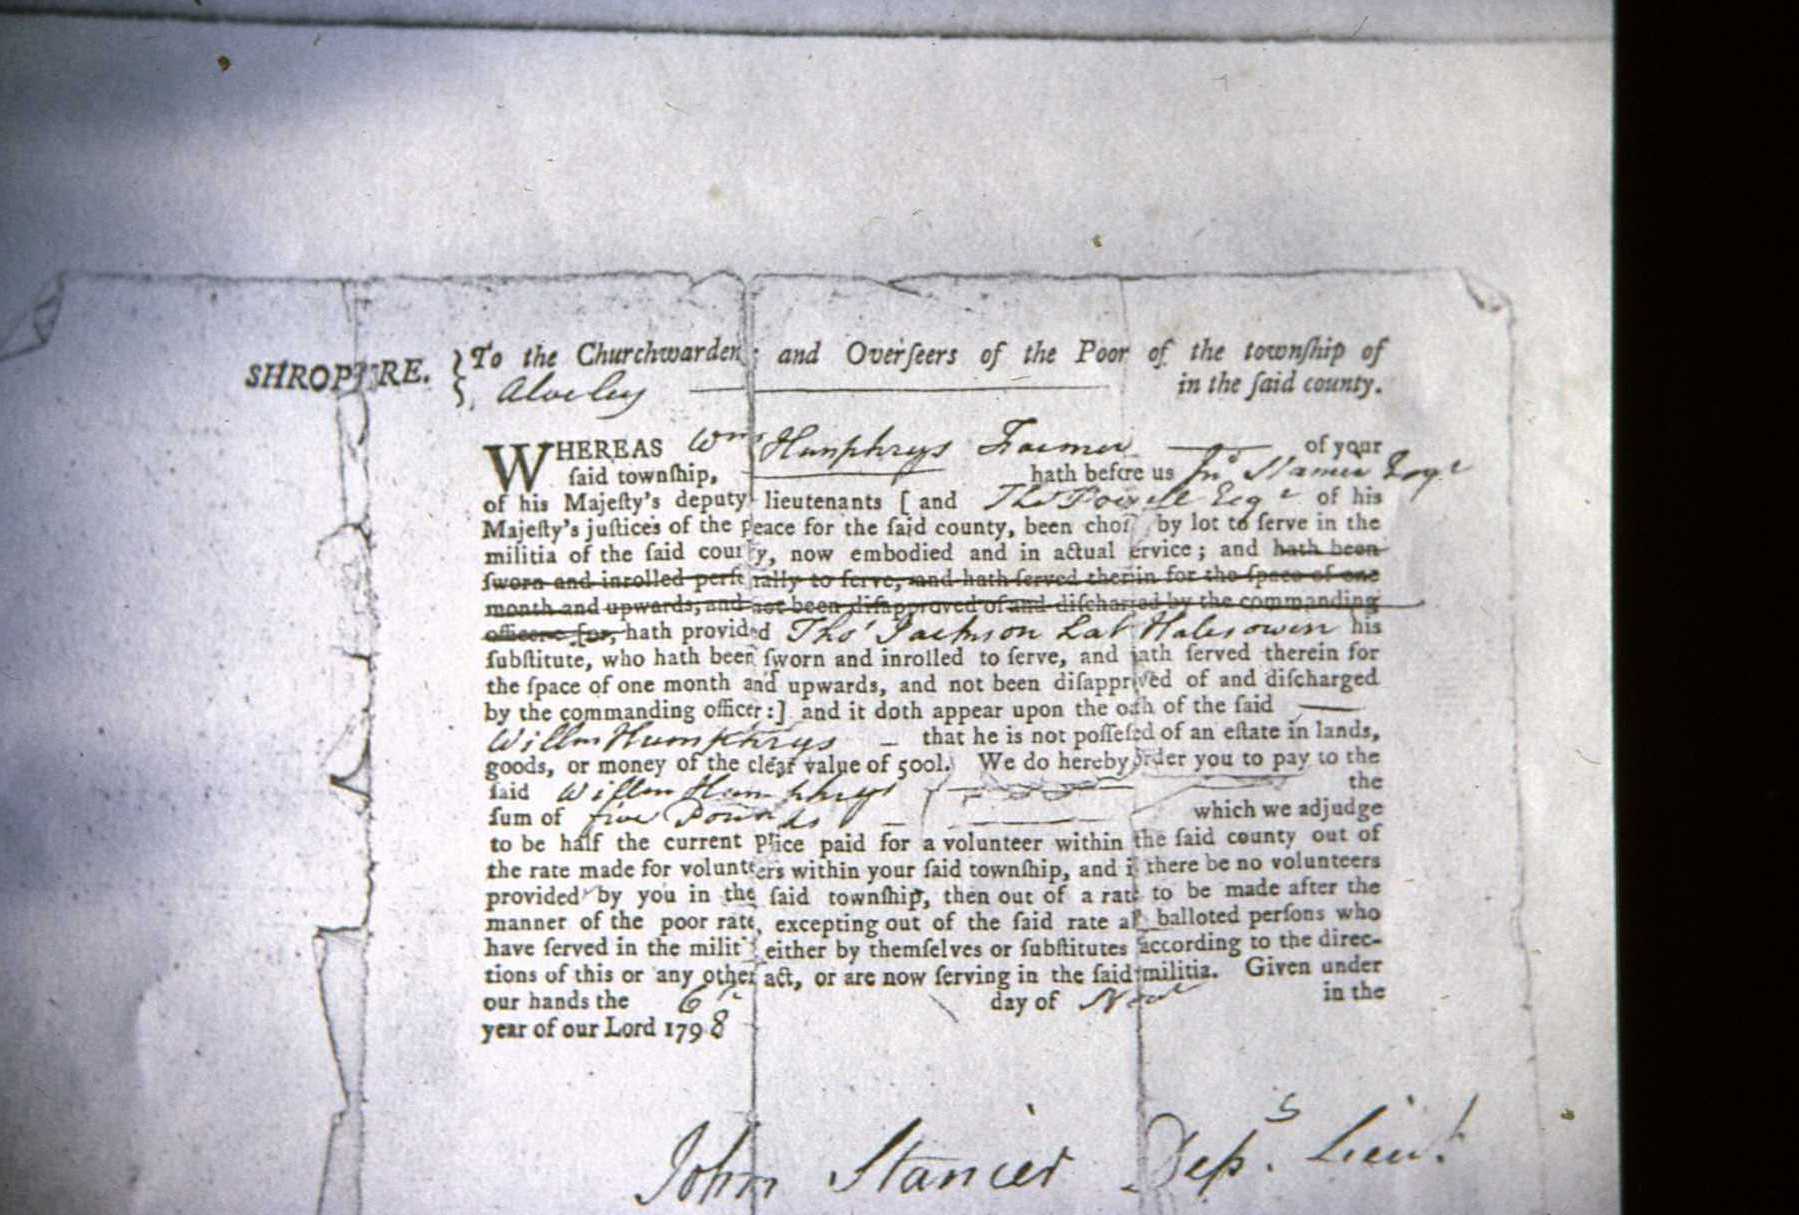 SHROPSHIRE. } To the Churchwardens and Overſeers of the Poor of the townſhip of
Alveley in the ſaid county.
WHEREAS Wm Humphrys Farmer of your
ſaid townſhip, hath before us Jno Stanier Esqr
of his Majeſty's deputy lieutenants [ and Thos Powell Esqr of his
Majeſty's juſtices of the peace for the ſaid county, been choſ by lot to ſerve in the
militia of the ſaid county, now embodied and in actual ſervice; and hath been
ſworn and inrolled perſonally to ſerve, and hath ſerved therein for the ſpace of one
month and upwards, and not been diſapproved of and diſcharged by the commanding
officer: [or, hath provided Thos Jackson Lab Halesowen his
ſubſtitute, who hath been ſworn and inrolled to ſerve, and hath ſerved therein for
the ſpace of one month and upwards, and not been diſapproved of and diſcharged
by the commanding officer:] and it doth appear upon the oath of the ſaid
Willm Humphrys that he is not poſſeſed of an eſtate in lands,
goods, or money of the clear value of 500l. We do hereby order you to pay to the
ſaid Willm Humphrys the
ſum of five Pounds which we adjudge
to be half the current price paid for a volunteer within the ſaid county out of
the rate made for volunteers within your ſaid townſhip, and if there be no volunteers
provided by you in the ſaid townſhip, then out of a rate to be made after the
manner of the poor rate, excepting out of the ſaid rate all balloted perſons who
have ſerved in the militia either by themſelves or ſubſtitutes according to the direc-
tions of this or any other act, or are now ſerving in the ſaid militia. Given under
our hands the 6th day of Novr in the
year of our Lord 1798
John Stanier Depy Lieut.